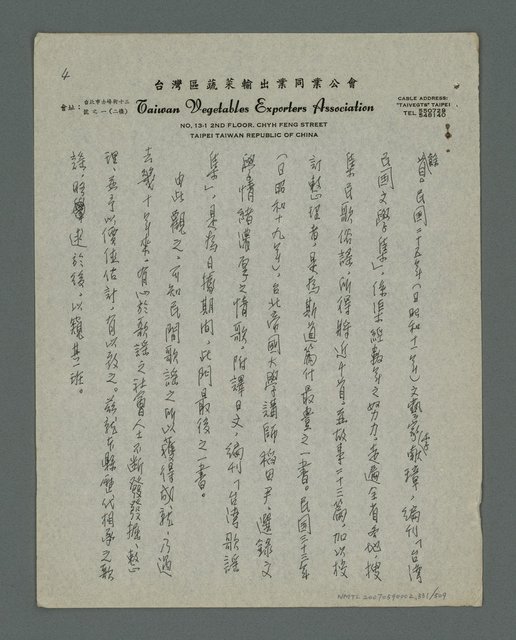 4
台灣區蔬菜輸出業同業公會
會址：台北市赤峰街十三號之一（二樓）
Taiwan Vegetables Exporters Association
CABLE ADDRESS:
"TAIVEGTB" TAIPEI
TEL 550729
548140
NO. 13-1 2ND FLOOR, CHYH FENG STREET
TAIPEI TAIWAN REPUBLIC OF CHINA
餘首。民國二十五年（日昭和十一年）文藝家李獻璋，編刊「台湾
民間文學集」，係渠經數年之努力，走遍全省各地，搜
集民歌俗謠，所得將近千首，並故事二十三篇，加以校
訂整理者，是為斯道篇什最豐之一書。民國三十三年
（日昭和十九年），台北帝國大學講師稻田尹，選錄文
學情緒濃厚之情歌，附譯日文，編刊「台湾歌謠
集」，是為日據期间，此門最後之一書。
由此觀之，可知民間歌謠之所以獲得成就，乃過
去幾十年來，有心於歌謠之社會人士不斷發掘，整
理，並予以價值估計，有以致之。茲就本縣歷代相承之歌
謠，略述於後，以窺其一斑。
NMTL 20070590002,331/509